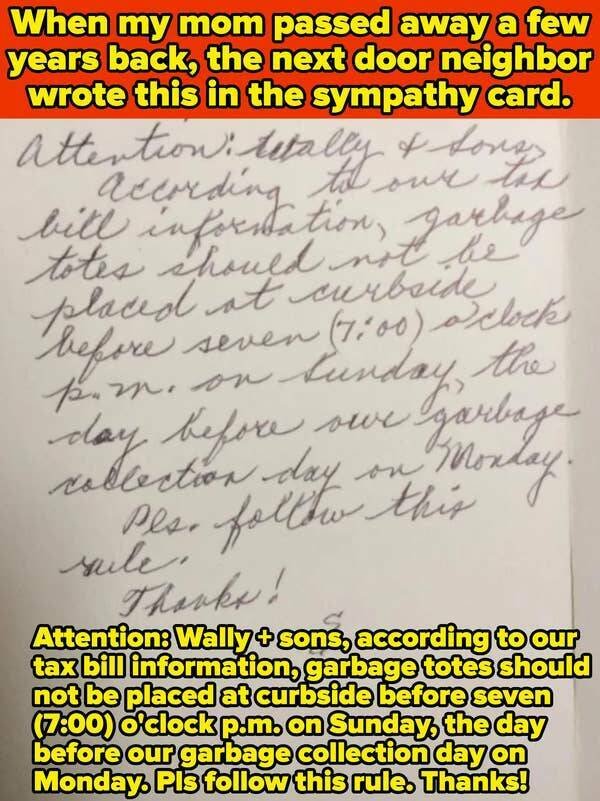 When my mom passed away a few
years back, the next door neighbor
wrote this in the sympathy card.
Attention: Wally & Sons,
According to our tax
bill information, garbage
totes should not be
placed at curbside
before seven (7:00) o'clock
p.m. on Sunday, the
day before our garbage
collection day on Monday.
Pls. follow this
rule.
Thanks!
Attention: Wally + sons, according to our
tax bill information, garbage totes should
not be placed at curbside before seven
(7:00) o'clock p.m. on Sunday, the day
before our garbage collection day on
Monday. Pls follow this rule. Thanks!